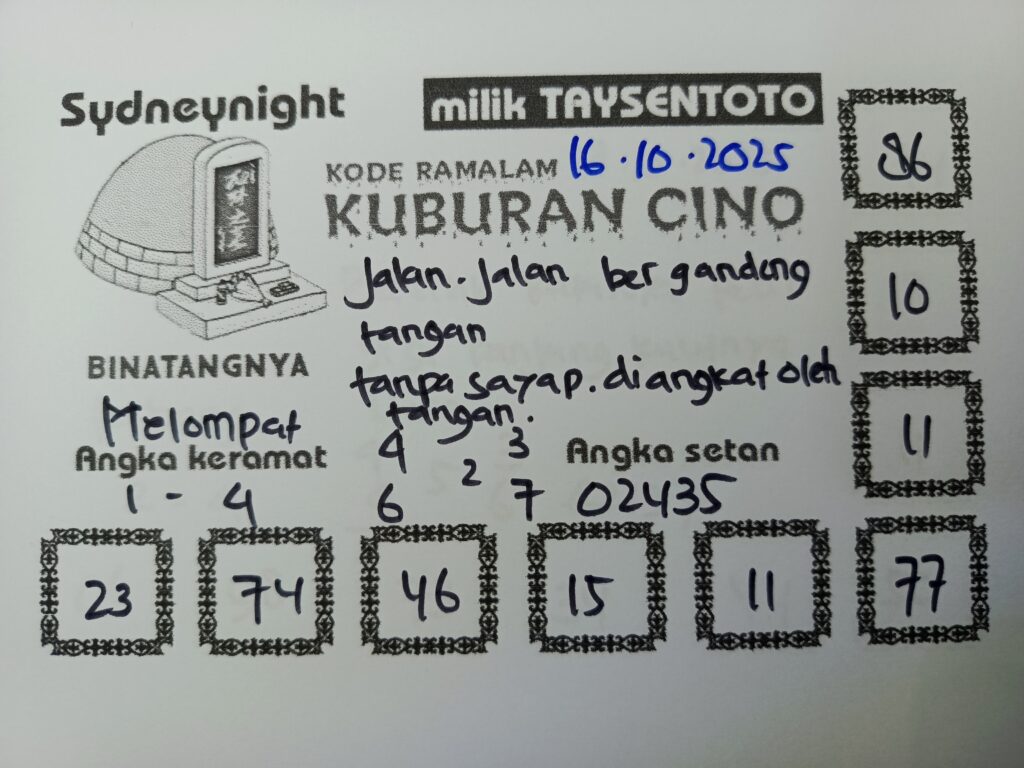 Sydneynight
milik TAYSENTOTO
KODE RAMALAM 16.10.2025
KUBURAN CINO
Jalan-Jalan ber gandeng
tangan
tanpa sayap. diangkat oleh
tangan.
BINATANGNYA
Melompat
Angka keramat
1 - 4
4 3
2
6 7
Angka setan
02435
86
10
11
23 74 46 15 11 77